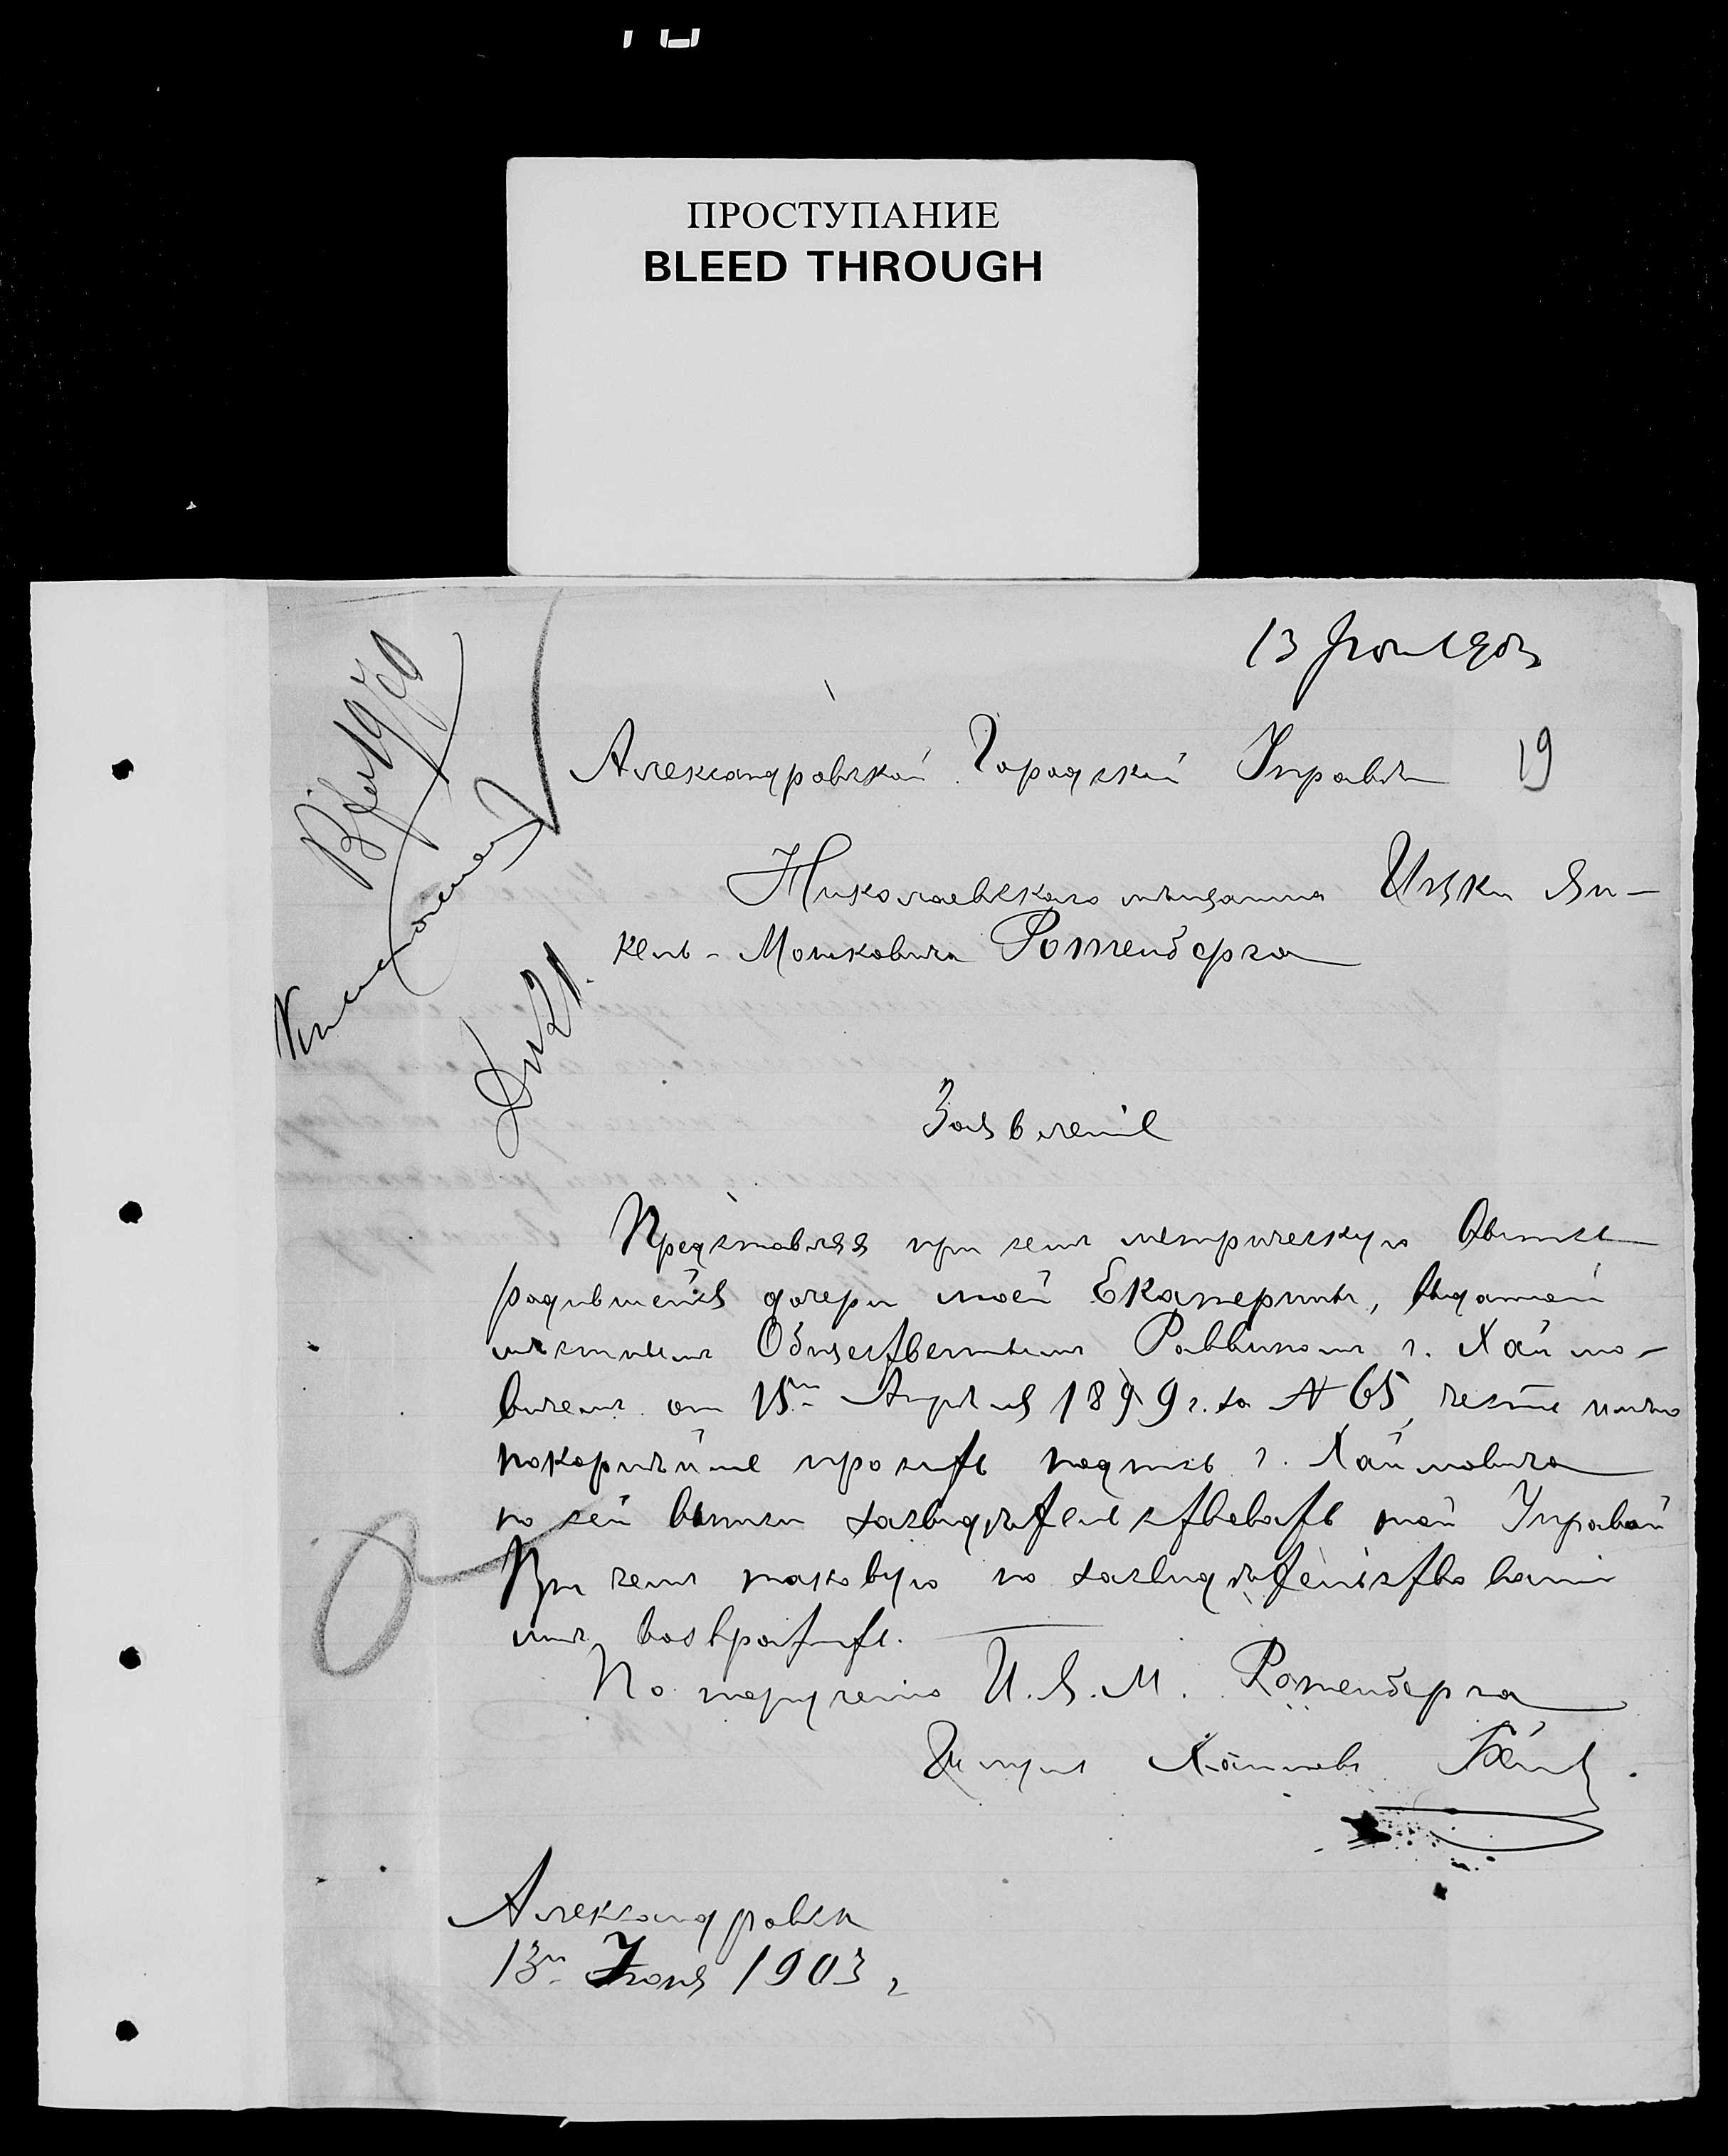 ПРОСТУПАНИЕ
BLEED THROUGH
13 Июня 1903
Александровской Городской Управѣ
19
Николаевскаго мѣщанина Ицки Ян-
кель-Мошковича Ротенберга
Заявленіе
Представляя при семъ метрическую выпись
родившейся дочери моей Екатерины, выданной
мѣстнымъ Общественнымъ Раввиномъ г. Хаймо-
вичемъ от 15го Апрѣля 1899 г. за № 65, честь имѣю
покорнѣйше просить подпись г. Хаймовича
на сей выписи засвидѣтельствовать той Управой
При чемъ таковую по засвидѣтельствовании
мнѣ возвратить.
По порученію И. Я. М. Ротенберга
Александровск
13го Июня 1903 г